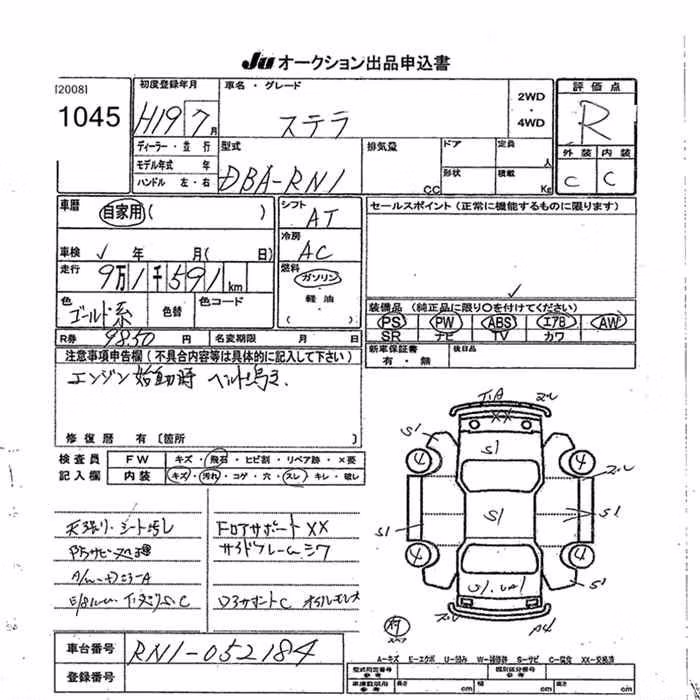 Ju オークション出品申込書
[2008]
1045
初度登録年月
H19 7月
車名・グレード
ステラ
2WD
・
4WD
評価点
R
外装 内装
C C
ディーラー・並行
モデル年式 年
ハンドル 左・右
型式
DBA-RN1
排気量
CC
ドア
形状
定員
人
積載
Kg
車歴
自家用 ( )
車検 年 月( 日)
走行
9万1千591km
シフト
AT
冷房
AC
燃料
ガソリン
軽油
( )
色
ゴールド系
色替
色コード
R券 9850 円
名変期限 月 日
セールスポイント (正常に機能するものに限ります)
装備品 (純正品に限り○を付けてください)
PS PW ABS エアB AW
SR ナビ TV カワ
新車保証書
有・無
後日品
注意事項申告欄 ( 不具合内容等は具体的に記入して下さい)
エンジン始動時 ベルト鳴き.
修復歴 有 〔箇所 〕
検査員
記入欄
FW キズ・飛石・ヒビ割・リペア跡・×要
内装 キズ・汚れ・コゲ・穴・スレ・キレ・破レ
天張り・シート汚レ
フロアサポート XX
サイドフレームシワ
オイルモレ大
S1
XX
S1
4
4
S1
S1
S1
4
4
S1
スペア
車台番号 RN1-052184
登録番号
A-キズ E-エクボ U-凹み W-補修跡 S-サビ C-腐食 XX-交換済
型式指定番号
類別区分番号
長さ cm 幅 cm 高さ cm